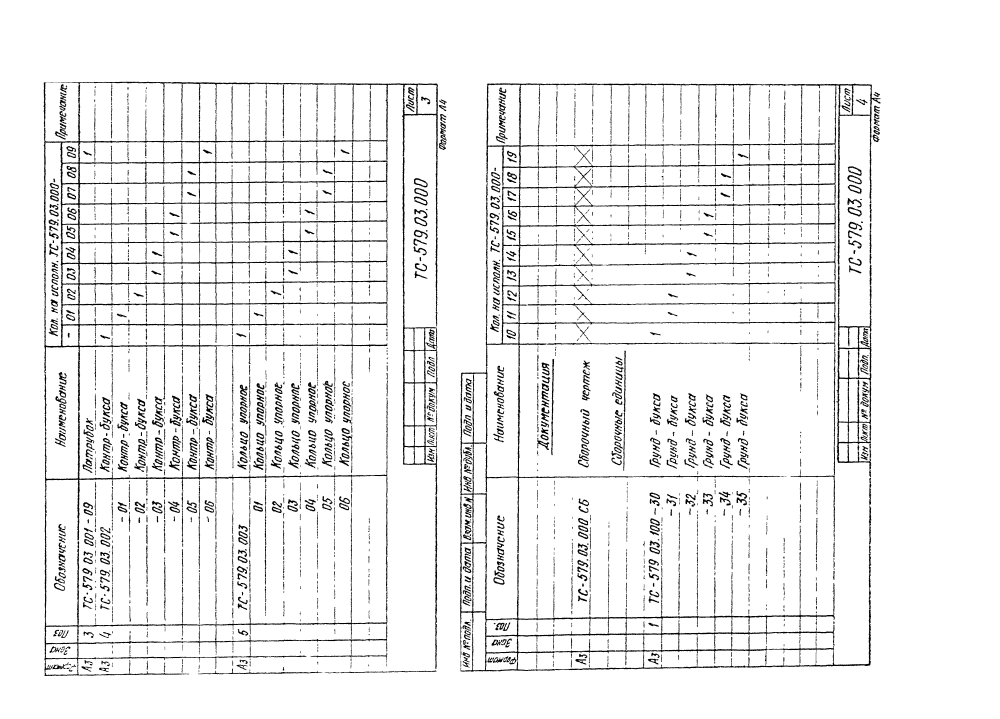 Формат Зона Поз Обозначение Наименование Кол. на исполн. ТС-579.03.000- Примечание
- 01 02 03 04 05 06 07 08 09
А3 3 ТС-579.03.001-09 Патрубок 1
А3 4 ТС-579.03.002 Контр-букса 1
-01 Контр-букса 1
-02 Контр-букса 1
-03 Контр-букса 1 1
-04 Контр-букса 1 1
-05 Контр-букса 1 1
-06 Контр-букса 1
А3 5 ТС-579.03.003 Кольцо упорное 1
01 Кольцо упорное 1
02 Кольцо упорное 1
03 Кольцо упорное 1 1
04 Кольцо упорное 1 1
05 Кольцо упорное 1 1
06 Кольцо упорное 1
Изм Лист № докум Подп Дата
ТС-579.03.000
Лист
3
Формат А4
Инв № подл. Подп. и дата Взам.инв № Инв № дубл. Подп и дата
Формат Зона Поз. Обозначение Наименование Кол. на исполн. ТС-579.03.000- Примечание
10 11 12 13 14 15 16 17 18 19
Документация
А3 ТС-579.03.000 СБ Сборочный чертеж
Сборочные единицы
А3 1 ТС-579 03.100-30 Грунд-букса 1
-31 Грунд-букса 1 1
-32 Грунд-букса 1 1
-33 Грунд-букса 1 1
-34 Грунд-букса 1 1
-35 Грунд-букса 1
Изм Лист № докум Подп. Дата
ТС-579.03.000
Лист
4
Формат А4